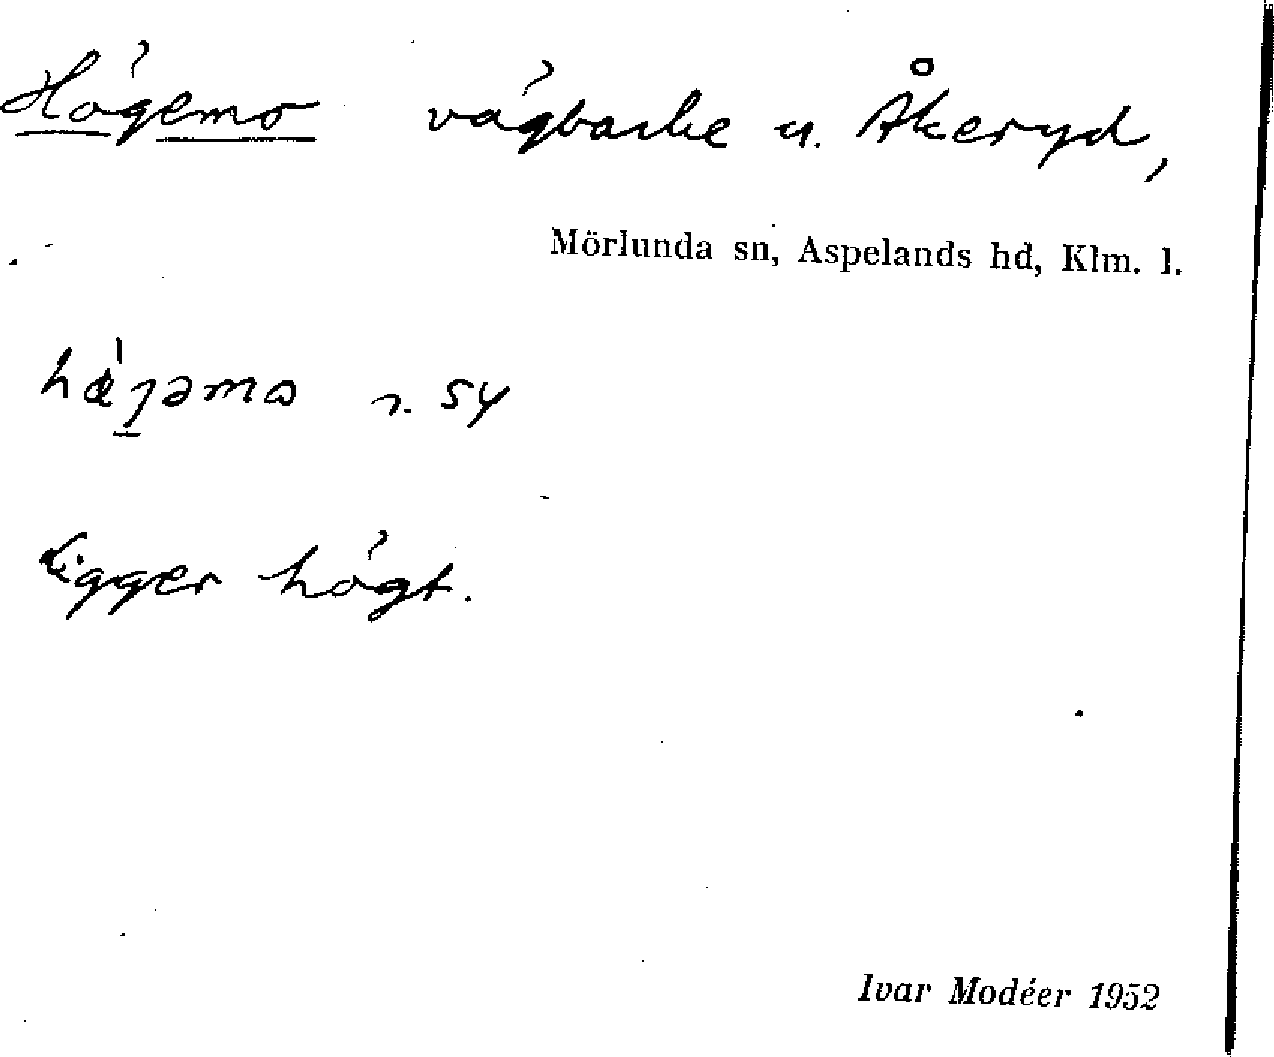 Högemo vägbacke u. Åkeryd,
Mörlunda sn, Aspelands hd, Klm. l.
r. sy
Ligger högt.
Ivar Modéer 1952